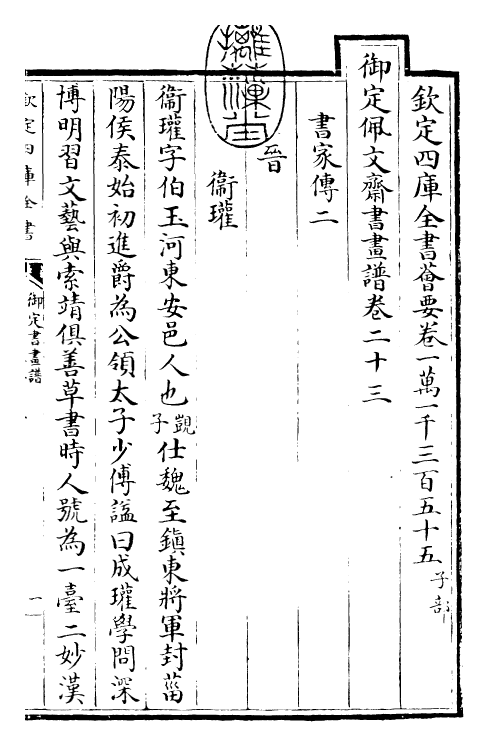 欽定四庫全書薈要卷一萬一千三百五十五子部
御定佩文齋書畫譜卷二十三
書家傳二
晉
衞瓘
衞瓘字伯玉河東安邑人也覬子仕魏至鎮東將軍封菑
陽侯泰始初進爵為公領太子少傅諡曰成瓘學問深
博明習文藝與索靖俱善草書時人號為一臺二妙漢
欽定四庫全書
御定書畫譜
一